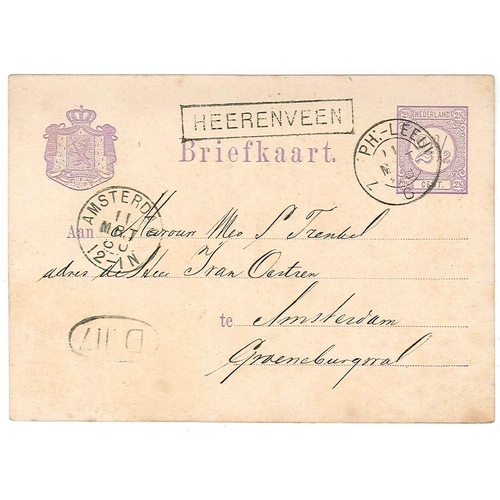 HEERENVEEN
Briefkaart.
NEDERLAND
2½
CENT.
ZPH:-LEEUW
11
C
AMSTERDA
11
MRT
12-1N
Aan Mevrouw S Frenkel
adres de Heer Ivan Oestren
te Amsterdam
Groeneburgwal
D.117